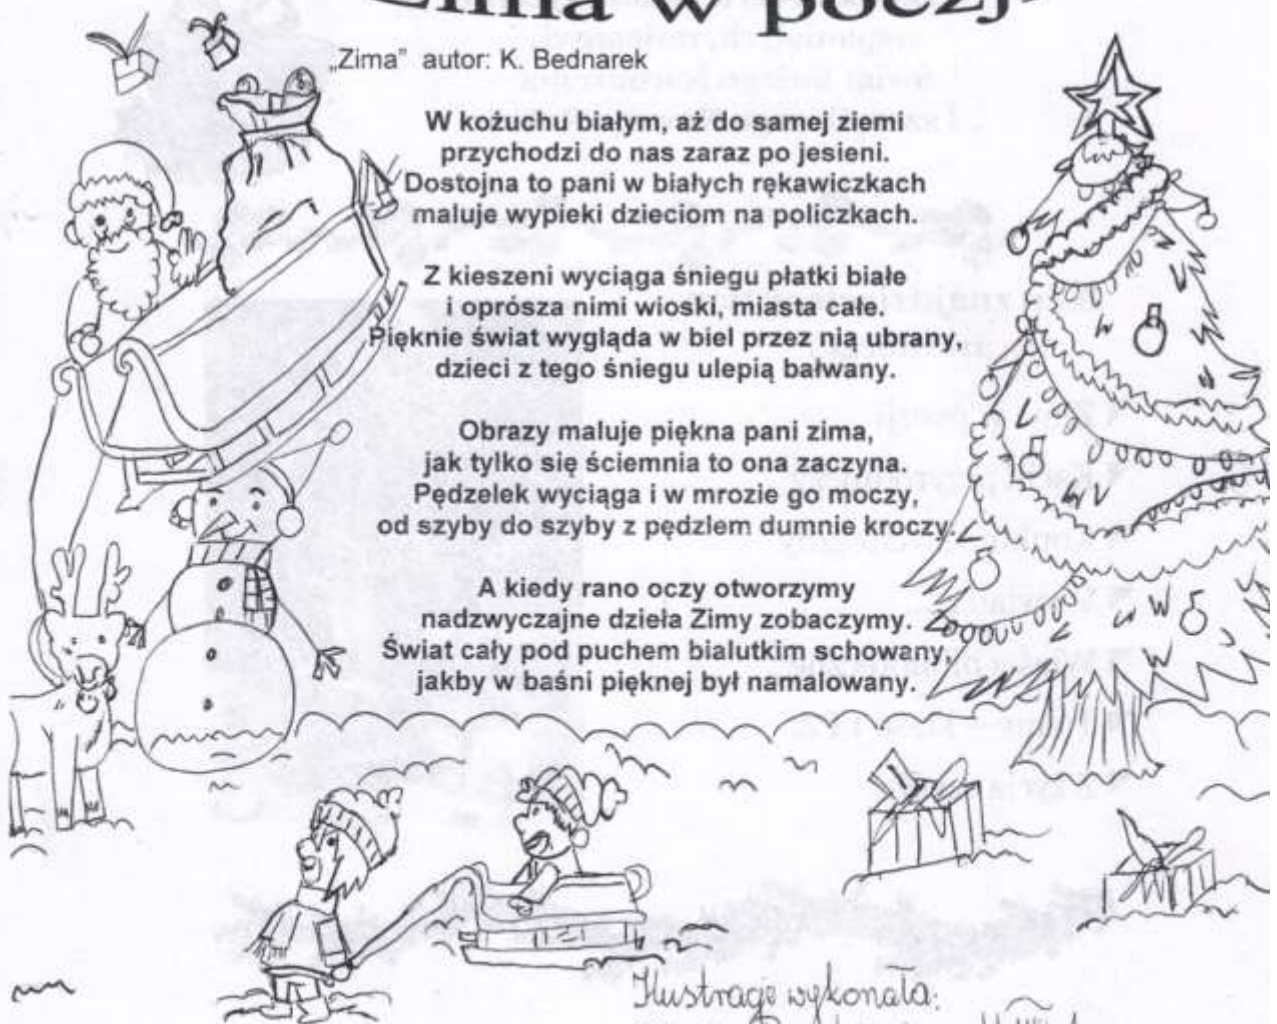 Zima w poezji
„Zima” autor: K. Bednarek
W kożuchu białym, aż do samej ziemi
przychodzi do nas zaraz po jesieni.
Dostojna to pani w białych rękawiczkach
maluje wypieki dzieciom na policzkach.
Z kieszeni wyciąga śniegu płatki białe
i oprósza nimi wioski, miasta całe.
Pięknie świat wygląda w biel przez nią ubrany,
dzieci z tego śniegu ulepią bałwany.
Obrazy maluje piękna pani zima,
jak tylko się ściemnia to ona zaczyna.
Pędzelek wyciąga i w mrozie go moczy,
od szyby do szyby z pędzlem dumnie kroczy.
A kiedy rano oczy otworzymy
nadzwyczajne dzieła Zimy zobaczymy.
Świat cały pod puchem bialutkim schowany,
jakby w baśni pięknej był namalowany.
Ilustracje wykonała: